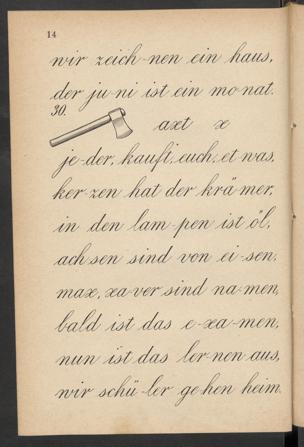 14
wir zeich-nen ein haus,
der ju-ni ist ein mo-nat.
30.
axt x
je-der, kauft, euch, et-was,
ker-zen hat der krä-mer,
in den lam-pen ist öl,
ach-sen sind von ei-sen,
max, xa-ver sind na-men,
bald ist das e-xa-men,
nun ist das ler-nen aus,
wir schü-ler ge-hen heim.